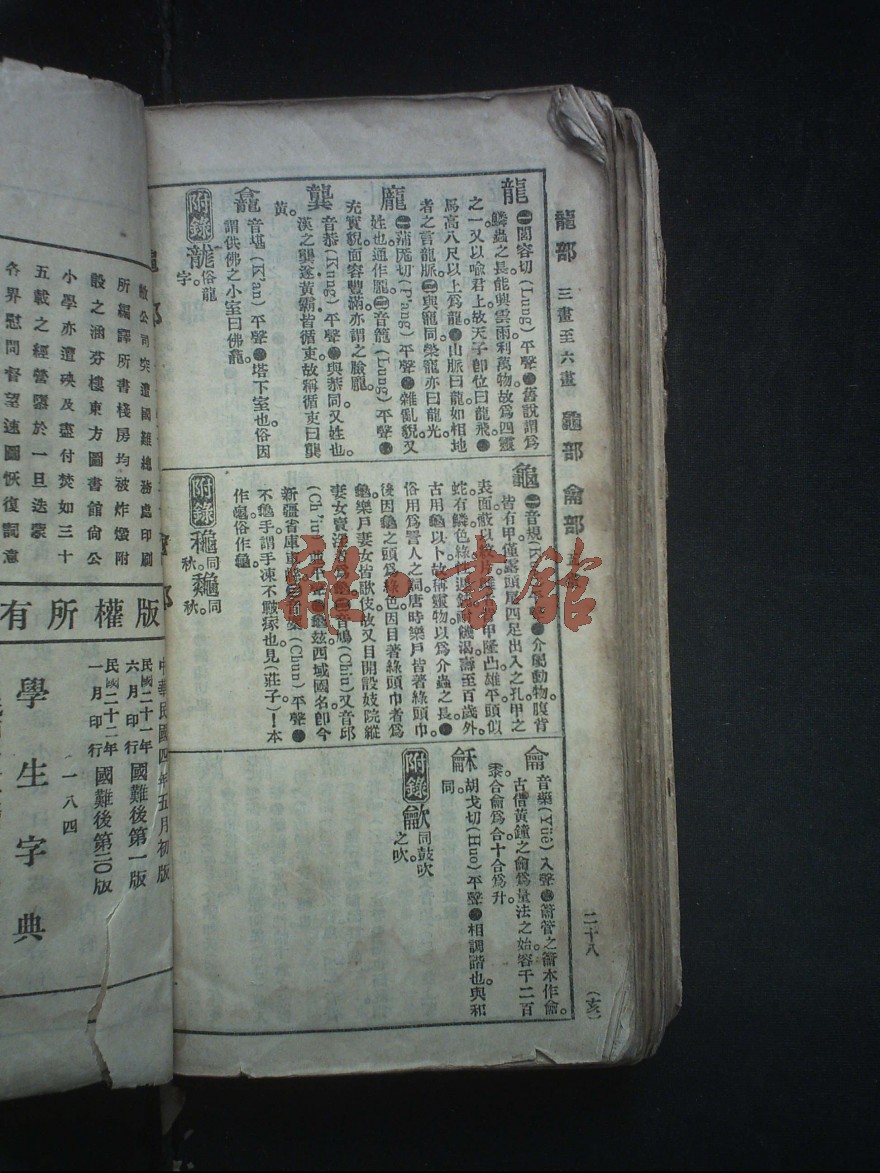 龍部 三畫至六畫 龜部 龠部
二十八 (亥)
龍 ㊀閭容切(Lung)平聲●舊說謂爲
鱗蟲之長能興雲雨利萬物故爲四靈
之一又以喻君上故天子卽位曰龍飛●
馬高八尺以上爲龍●山脈曰龍如相地
者之言龍脈㊁與寵同榮寵亦曰龍光
龐 ㊀蒲厖切(P'ang)平聲●雜亂貌又
姓也通作龎㊁音籠(Lung)平聲●
充實貌面容豐滿亦謂之臉龐
龔 音恭(Kung)平聲●與恭同又姓也
漢之龔遂黃霸皆循吏故稱循吏曰龔
黃
龕 音堪(K'an)平聲●塔下室也俗因
謂供佛之小室曰佛龕
附錄 俗龍字
龜 ㊀音規 平聲●介屬動物腹背
皆有甲僅露頭尾四足出入之孔甲之
表面蔽以 甲隆凸雄平頭似
蛇有鱗色綠 饑渴壽至百歲外
古用龜以卜故稱靈物以爲介蟲之長●
俗用爲詈人之詞唐時樂戶皆著綠頭巾
後因龜之頭爲綠色因目著綠頭巾者爲
龜樂戶妻女皆歌伎故又目開設妓院縱
妻女賣淫者爲龜㊁音鳩(Chiu)又音邱
(Ch'iu)並平聲●龜兹西域國名卽今
新疆省庫車縣 (Chun)平聲●
不龜手謂手凍不皸瘃也見(莊子)！本
作龜俗作龜
附錄 龝同秋 同秋
龠 音藥(Yüe)入聲●籥管之籥本作龠
古借黃鐘之龠爲量法之始容千二百
黍合龠爲合十合爲升
龢 胡戈切(Huo)平聲●相調諧也與和
同
附錄 龡同鼓吹之吹
敝公司突遭國難總務處印刷
所編譯所書棧房均被炸燬附
設之涵芬樓東方圖書館尙公
小學亦遭殃及盡付焚如三十
五載之經營隳於一旦迭蒙
各界慰問督望速圖恢復詞意
版權所有
中華民國四年五月初版
民國二十一年六月印行 國難後第一版
民國二十二年一月印行 國難後第二〇版
一八四
學生字典
雅書館